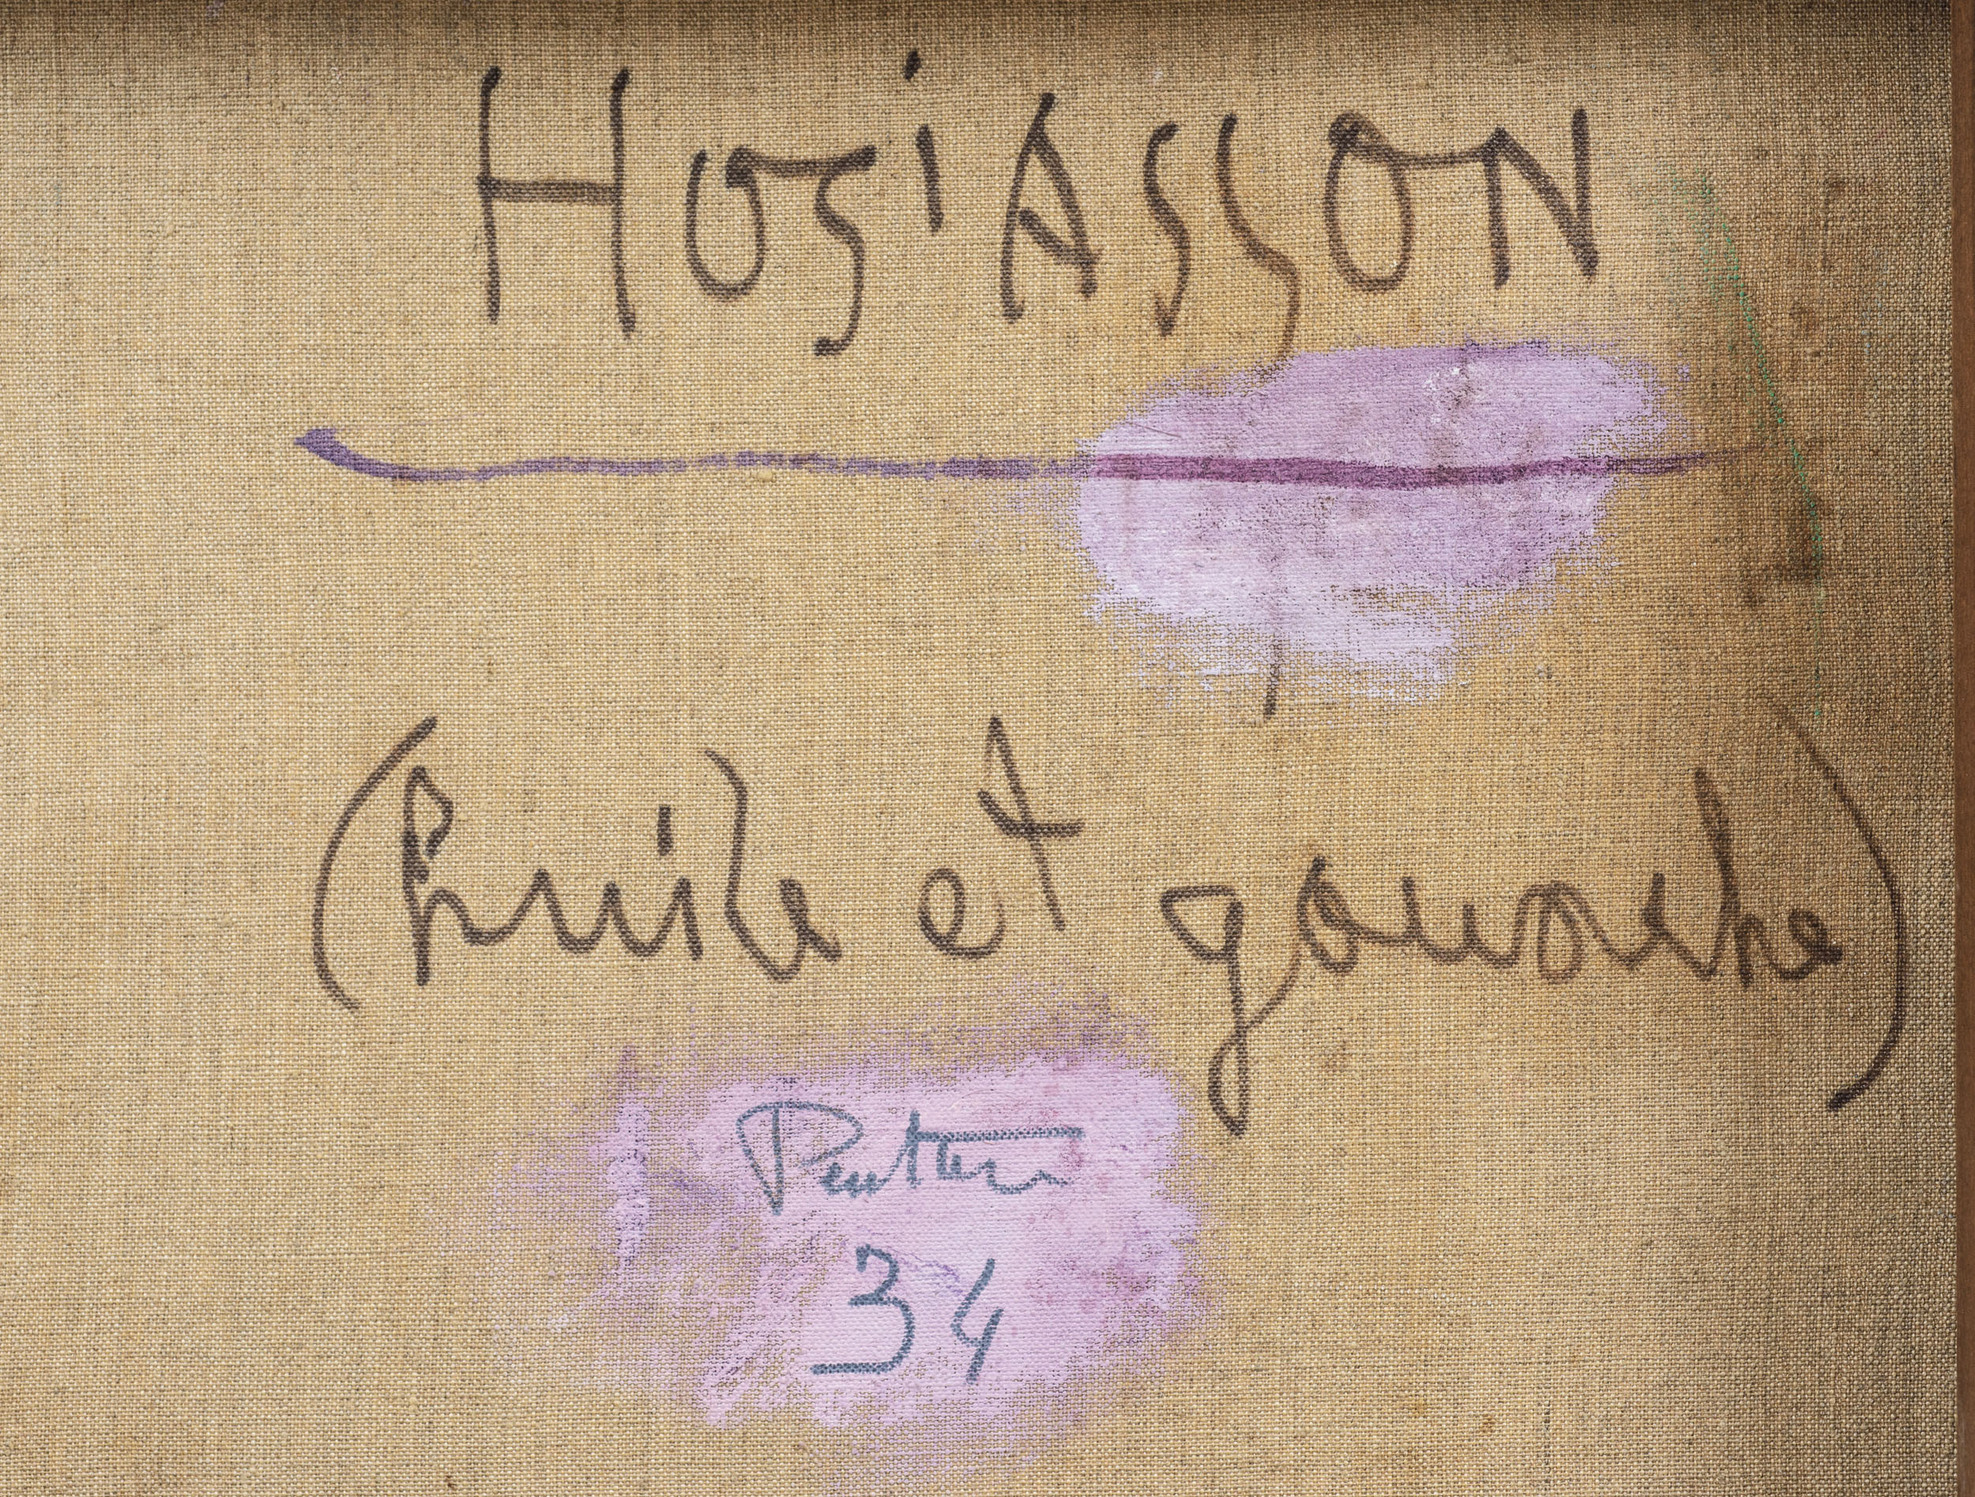 HOSiASSON
(huile et gouache)
Peinture
34